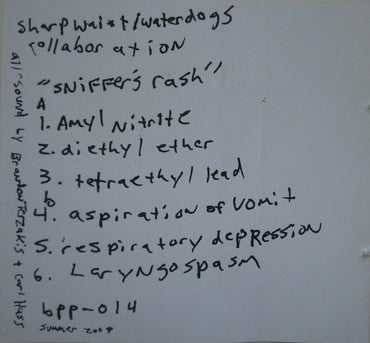 sharpwaist/waterdogs
collaboration
"SNiffer's rash"
A
1. Amyl Nitrite
2. diethyl ether
3. tetraethyl lead
b
4. aspiration of vomit
5. respiratory depRession
6. Laryngospasm
bpp-014
summer
all sound by Brandon + Carl Hass